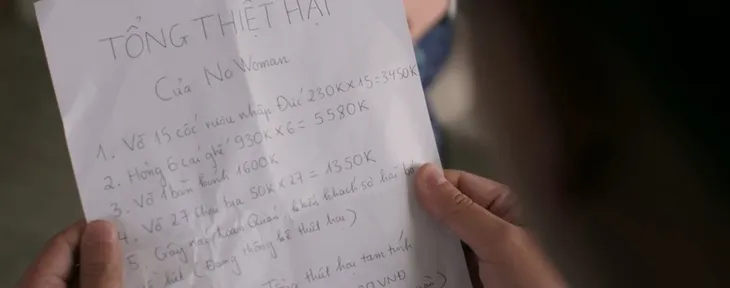 TỔNG THIỆT HẠI
Của No Woman
1. Vỡ 15 cốc rượu nhập Đức 230K x 15 = 3450K
2. Hỏng 6 cái ghế 930K x 6 = 5580K
3. Vỡ 1 bàn 1600K
4. Vỡ 27 chai bia 50K x 27 = 1350K
5. Gây náo loạn quán khiến khách sợ hãi bỏ
(Đang thống kê thiệt hại)
Tổng thiệt hại tạm tính
VNĐ